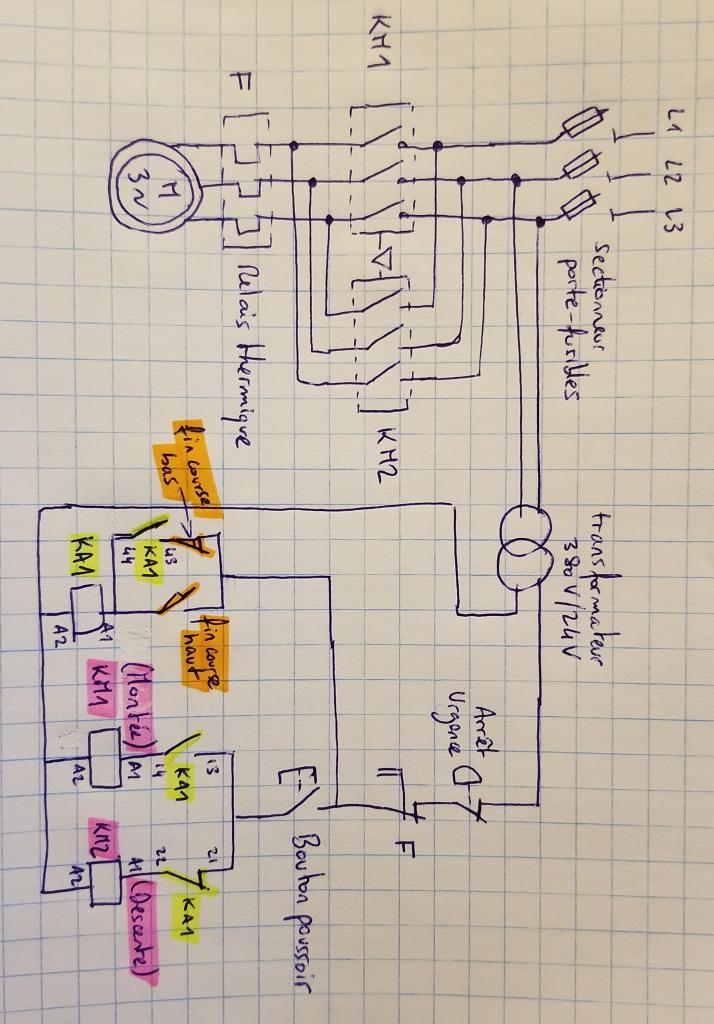 L1 L2 L3
sectionneur
porte-fusibles
transformateur
380V/24V
Arrêt
Urgence
KM1
KM2
F
F
Relais thermique
Bouton poussoir
M
3~
fin course
bas
fin course
haut
43
KA1
44
KA1
A1
A2
13
KA1
14
21
KA1
22
(Montée)
KM1
A1
A2
(Descente)
KM2
A1
A2